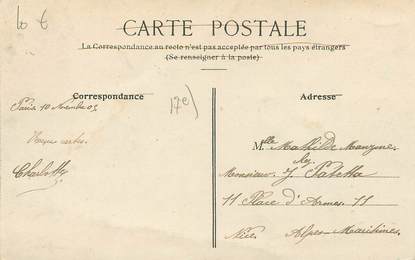 10 €
CARTE POSTALE
La Correspondance au recto n'est pas acceptée par tous les pays étrangers
(Se renseigner à la poste)
Correspondance
17e)
Adresse
Paris 10 Novembre
Charlotte
Mlle Mathilde
Monsieur J
11 Place d'Armes 11
Nice. Alpes-Maritimes.